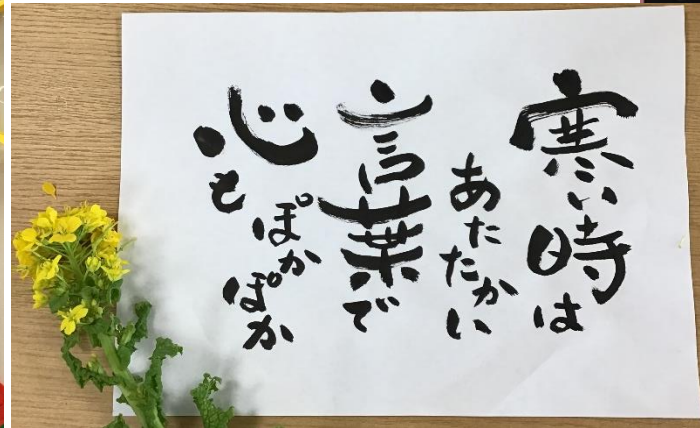 寒い時は
あたたかい
言葉で
心も
ぽかぽか